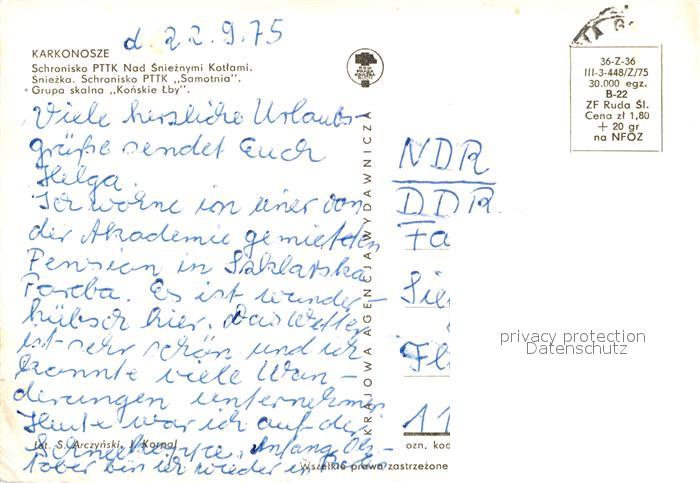 d. 22.9.75
KARKONOSZE
Schronisko PTTK Nad Śnieżnymi Kotłami.
Śnieżka. Schronisko PTTK „Samotnia".
Grupa skalna „Końskie Łby".
36-Z-36
III-3-448/Z/75
30.000 egz.
B-22
ZF Ruda Śl.
Cena zł 1,80
+ 20 gr
na NFOZ
Viele herzliche Urlaubs-
grüße sendet Euch
Helga.
Ich wohne in einer von
der Akademie gemieteten
Pension in Szklarska
Poreba. Es ist wunder-
hübsch hier. Das Wetter
ist sehr schön und ich
konnte viele Wan-
derungen unternehmen
Heute war ich auf der
Schneekoppe. Anfang Ok-
tober bin ich wieder in
KRAJOWA AGENCJA WYDAWNICZA
NDR
DDR
Fa
Sie
Fl
11
privacy protection
Datenschutz
fot. S. Arczyński, J. Korpal
ozn. kod
Wszelkie prawa zastrzeżone